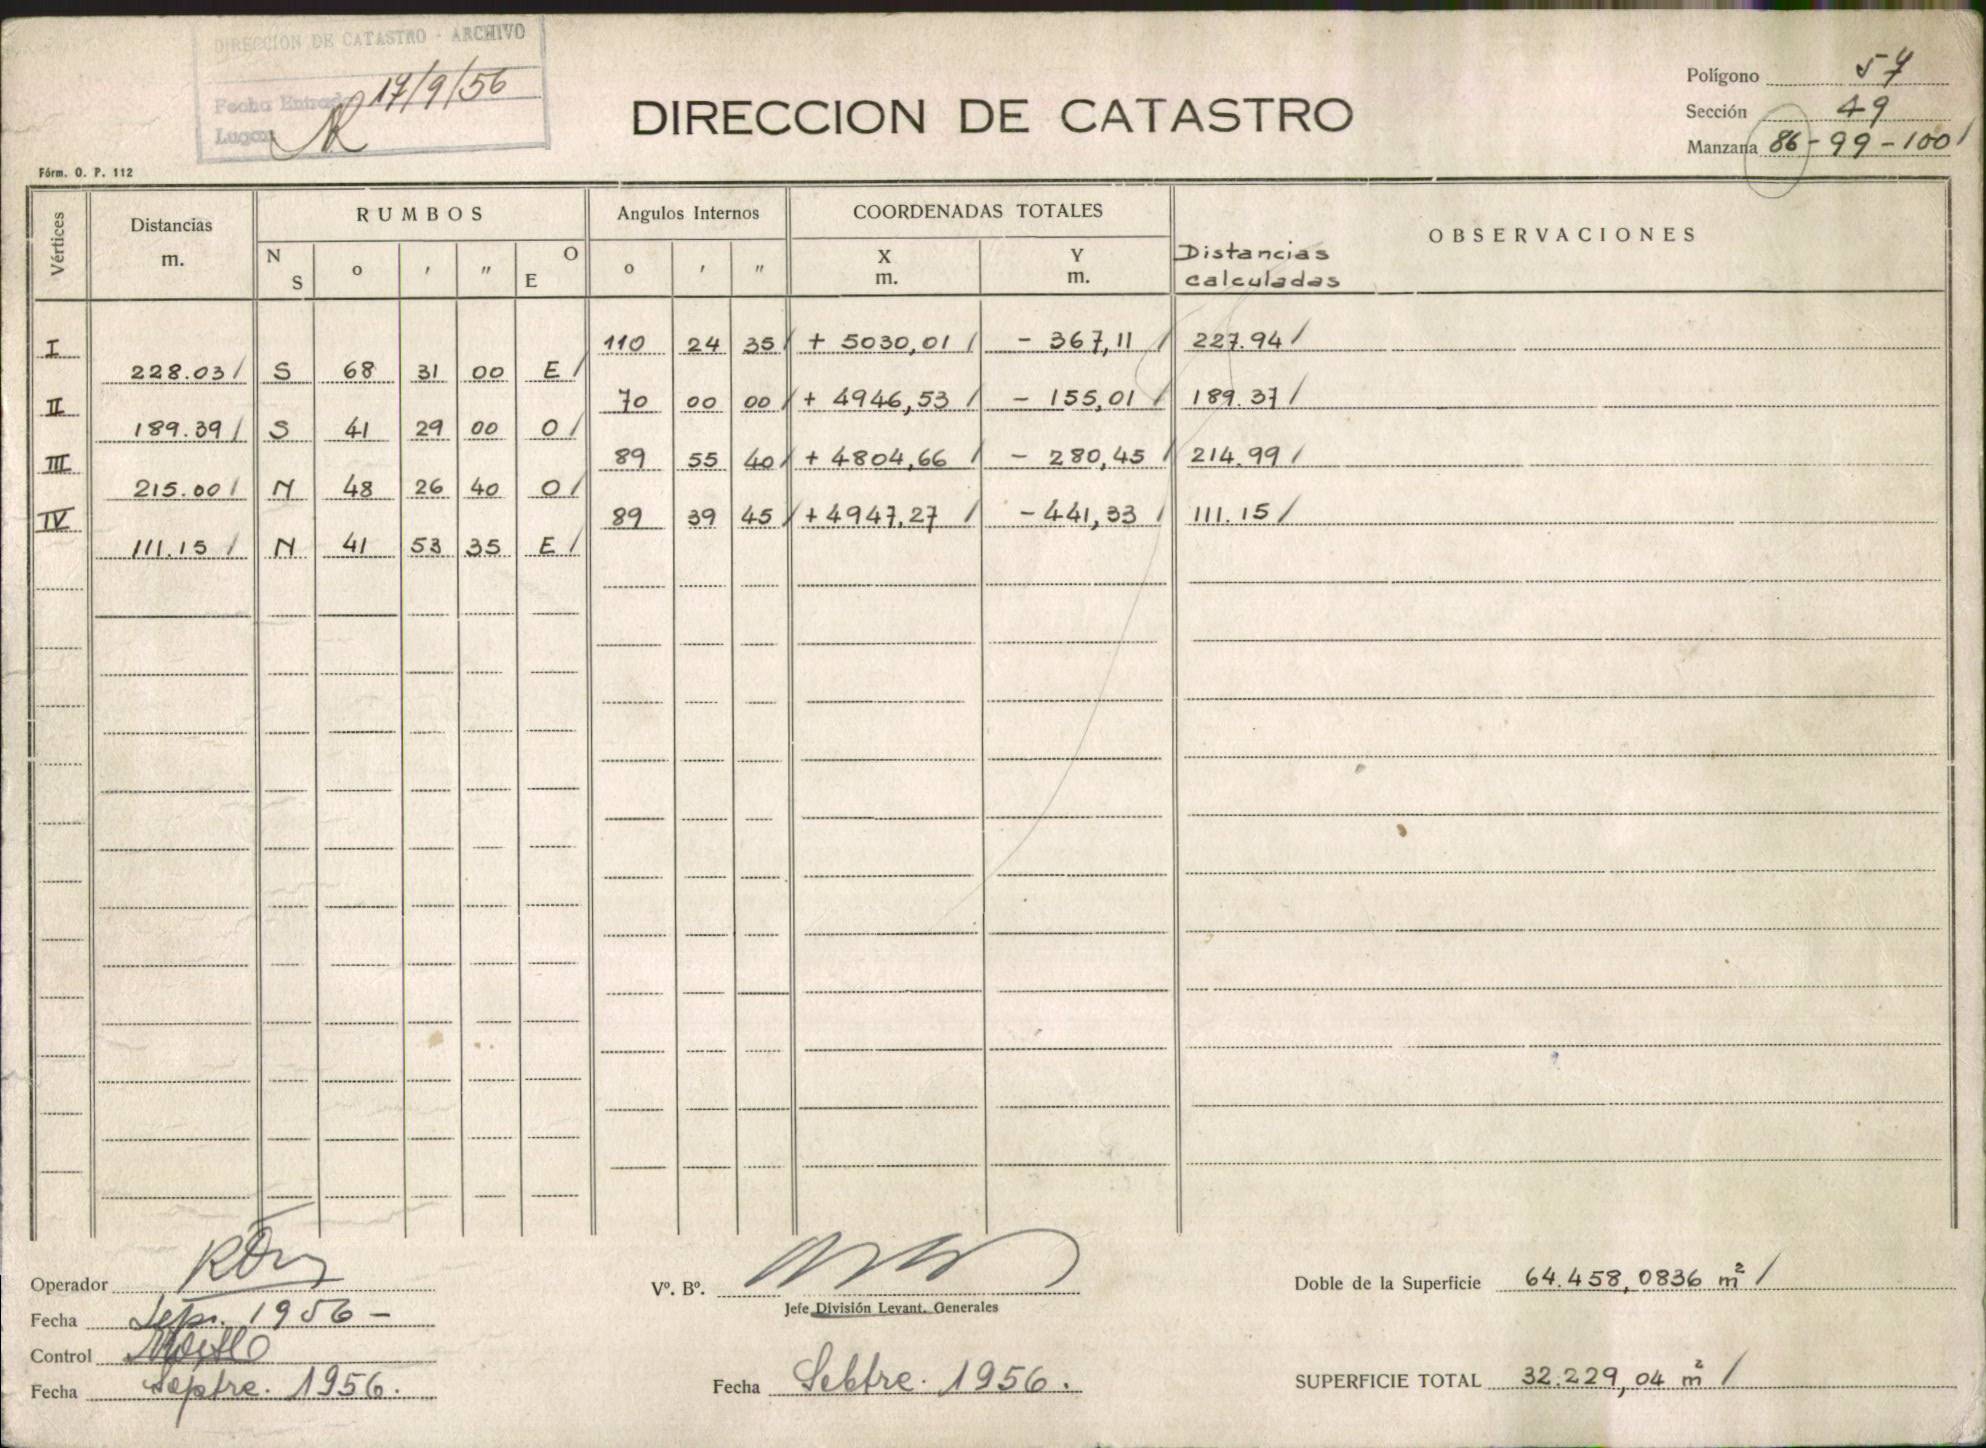 DIRECCION DE CATASTRO - ARCHIVO
Fecha Entrada 17/9/56
Lugar
DIRECCION DE CATASTRO
Polígono 57
Sección 49
Manzana 86-99-100/
Fórm. O. P. 112
Vértices Distancias m. RUMBOS N S o ′ ″ O E Angulos Internos o ′ ″ COORDENADAS TOTALES X m. Y m. Distancias calculadas OBSERVACIONES
I 110 24 35/ + 5030,01 / - 367,11 / 227.94/
228.03/ S 68 31 00 E/
II 70 00 00/ + 4946,53 / - 155,01 / 189.37/
189.39/ S 41 29 00 O/
III 89 55 40/ + 4804,66 / - 280,45 / 214.99/
215.00/ N 48 26 40 O/
IV 89 39 45/ + 4947,27 / - 441,33 / 111.15/
111.15/ N 41 53 35 E/
Operador
Fecha Sep. 1956 -
Control
Fecha Septre. 1956.
Vº. Bº.
Jefe División Levant. Generales
Fecha Sebtre. 1956.
Doble de la Superficie 64.458,0836 m² /
SUPERFICIE TOTAL 32.229,04 m² /